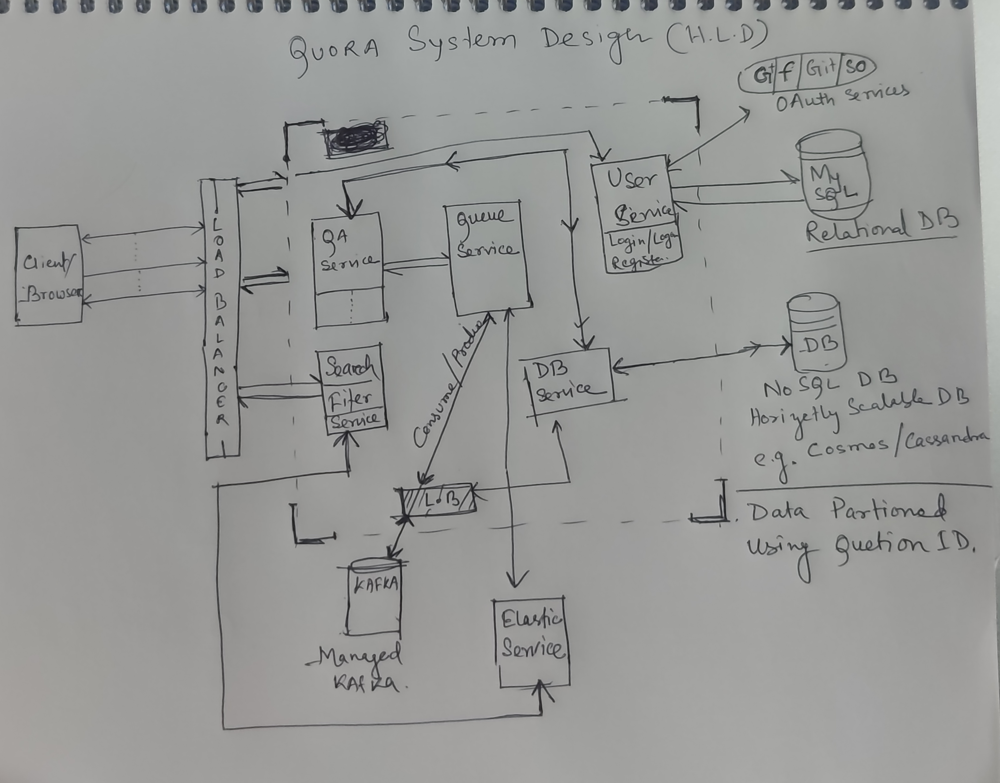 QUORA System Design (H.L.D)
G+/f/Git/SO
OAuth Services
My
SQL
Relational DB
User
Service
Login/Logo
Registe.
LOAD BALANCER
Client/
Browser
QA
Service
Queue
Service
Search
Fiter
Service
Consume/Produ
DB
Service
DB
NoSQL DB
Horizetly Scalable DB
e.g. Cosmos/Cassandra
. Data Partioned
Using Quetion ID.
L.B
KAFKA
Managed
KAFKA.
Elastic
Service